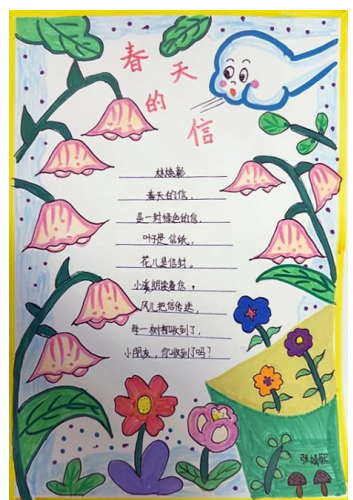 春天的信
林焕彰
春天的信，
是一封绿色的信，
叶子是信纸，
花儿是信封。
小溪朗读着信，
风儿把信传送，
每一树都收到了，
小朋友，你收到了吗？